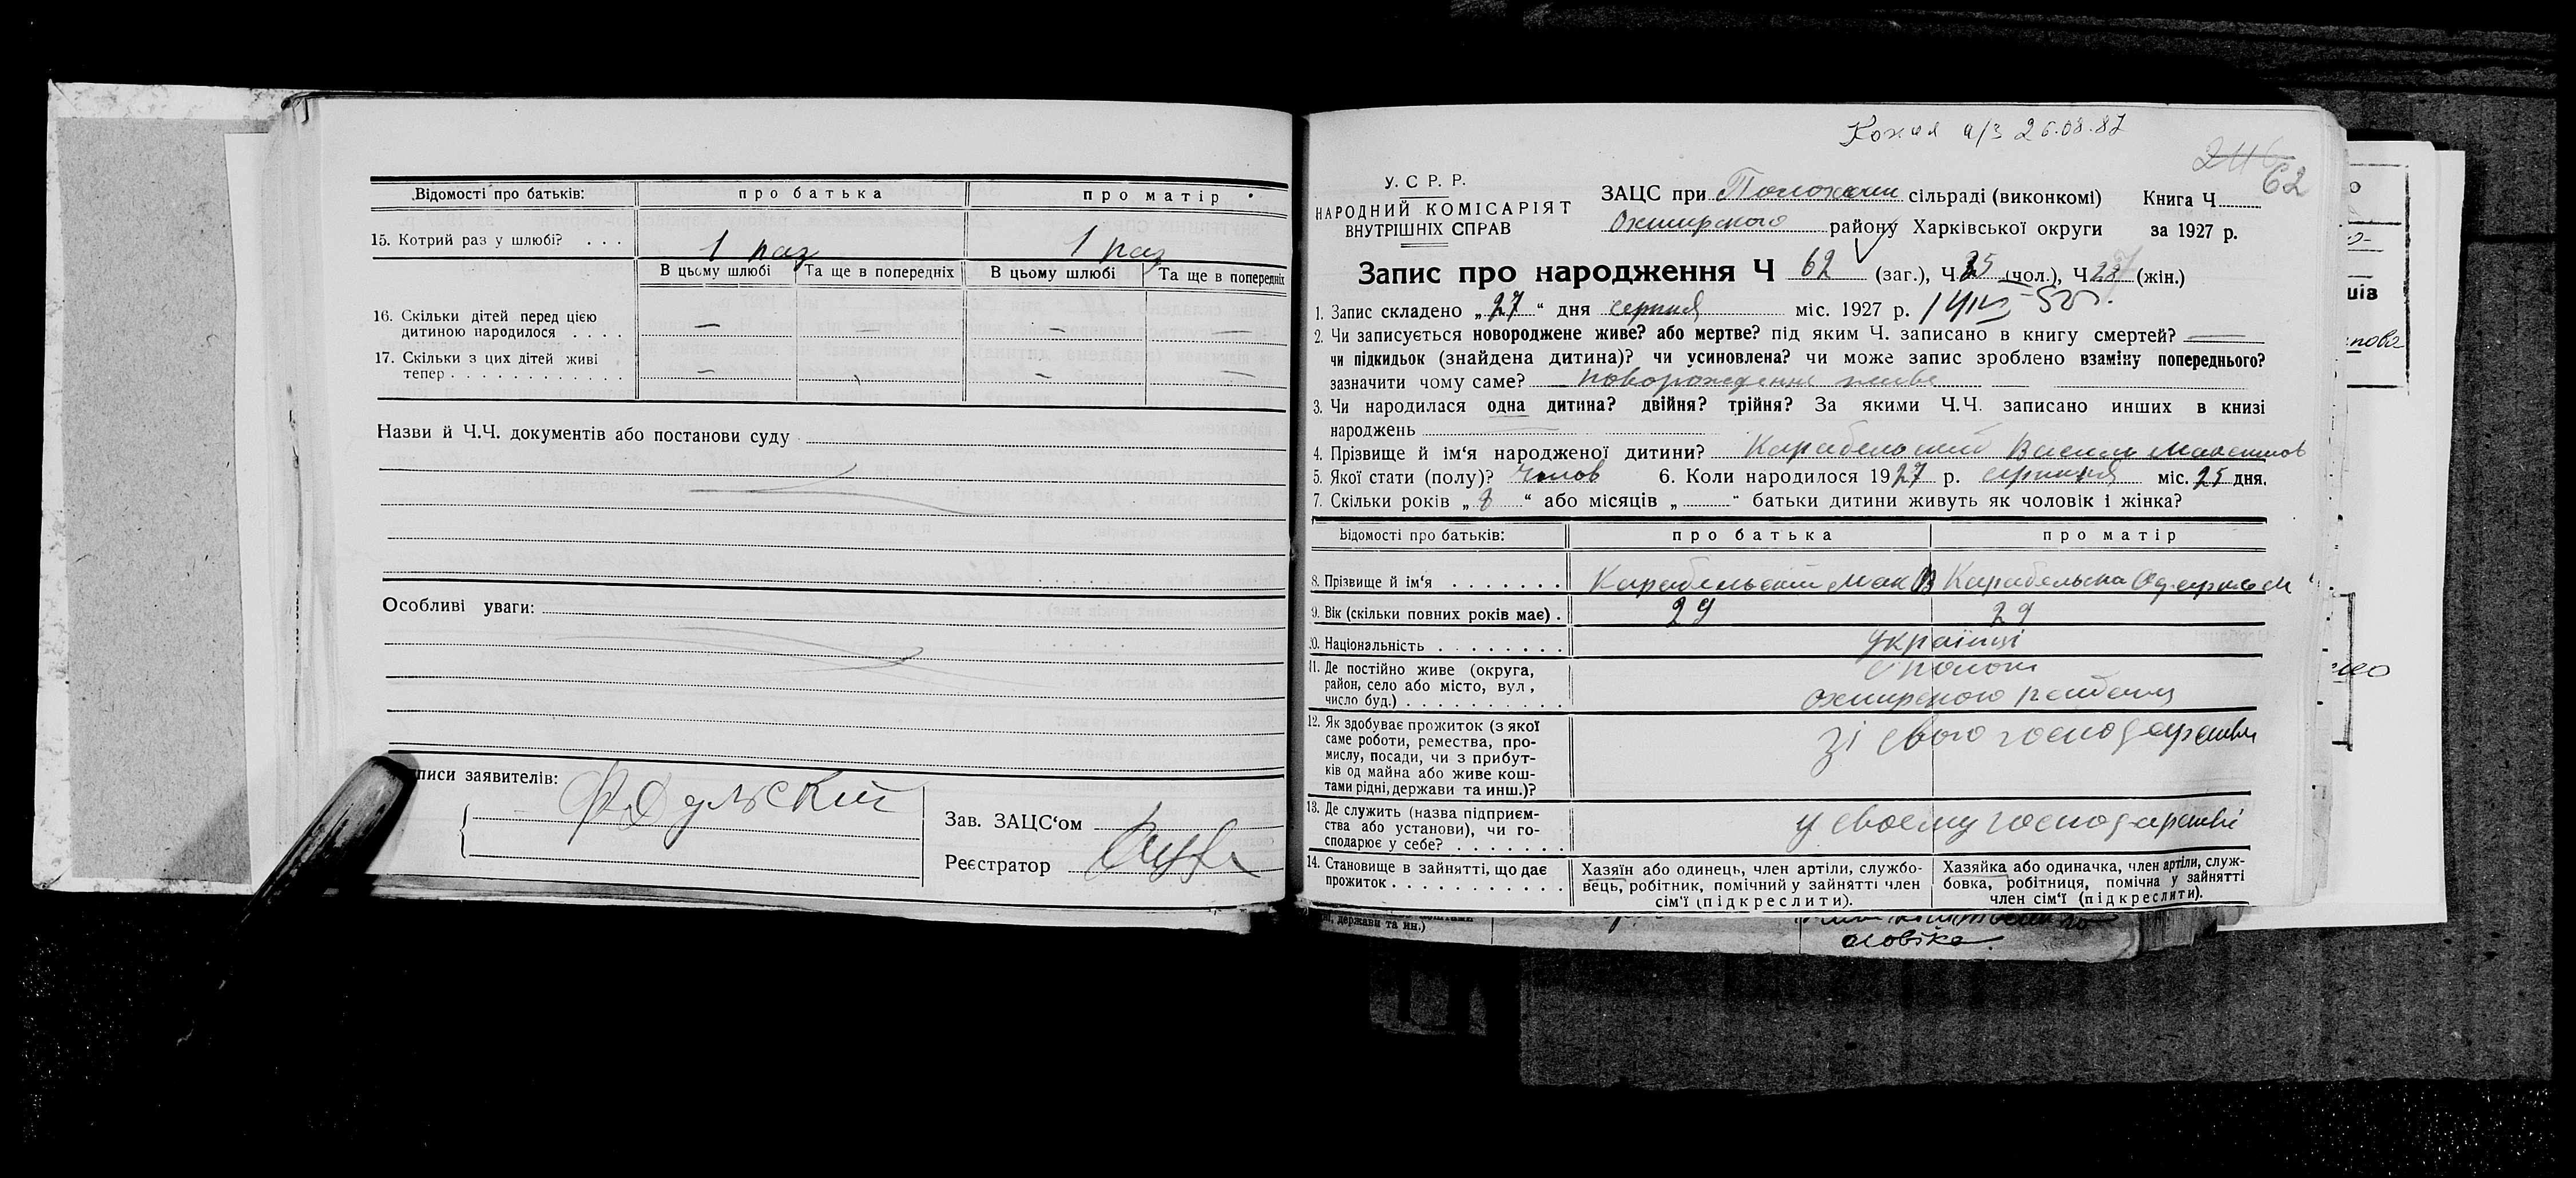 Відомості про батьків: про батька про матір
15. Котрий раз у шлюбі? . . . 1 раз 1 раз
В цьому шлюбі Та ще в попередніх В цьому шлюбі Та ще в попередніх
16. Скільки дітей перед цією
дитиною народилося . . . . — — — —
17. Скільки з цих дітей живі
тепер . . . . . . . . . . . . — — —
Назви й Ч.Ч. документів або постанови суду
Особливі уваги:
писи заявителів:
Зав. ЗАЦС‘ом
Реєстратор
Копия а/з 26.08.87
62
У. С Р. Р.
НАРОДНИЙ КОМІСАРІЯТ
ВНУТРІШНІХ СПРАВ
ЗАЦС при сільраді (виконкомі) Книга Ч
району Харківської округи за 1927 р.
Запис про народження Ч 62 (заг.), Ч. 35 (чол.), Ч (жін.)
1. Запис складено „ 27 “ дня серпня міс. 1927 р.
2. Чи записується новороджене живе? або мертве? під яким Ч. записано в книгу смертей? —
чи підкидьок (знайдена дитина)? чи усиновлена? чи може запис зроблено взаміну попереднього?
зазначити чому саме? новорожденне живе
3. Чи народилася одна дитина? двійня? трійня? За якими Ч.Ч. записано инших в книзі
народжень
4. Прізвище й ім‘я народженої дитини? Карабельский Василь
5. Якої стати (полу)? чолов 6. Коли народилося 1927 р. серпня міс. 25 дня.
7. Скільки років „ 8 “ або місяців „ “ батьки дитини живуть як чоловік і жінка?
Відомості про батьків: про батька про матір
8. Прізвище й ім‘я . . . . . . . Карабельский Мак Карабельска
9. Вік (скільки повних років має) . 29 29
10. Національність . . . . . . . . українці
11. Де постійно живе (округа,
район, село або місто, вул,
число буд.) . . . . . . . . . .
12. Як здобуває прожиток (з якої
саме роботи, ремества, про-
мислу, посади, чи з прибут-
ків од майна або живе кош-
тами рідні, держави та инш.)?
зі свого господарства
13. Де служить (назва підприєм-
ства або установи), чи го-
сподарює у себе? . . . . . . .
у своему господарстві
14. Становище в зайнятті, що дає
прожиток . . . . . . . . . . . .
Хазяїн або одинець, член артіли, службо-
вець, робітник, помічний у зайнятті член
сім‘ї (підкреслити).
Хазяйка або одиначка, член артіли, служ-
бовка, робітниця, помічна у зайнятті
член сім‘ї (підкреслити).
держави та ин.)